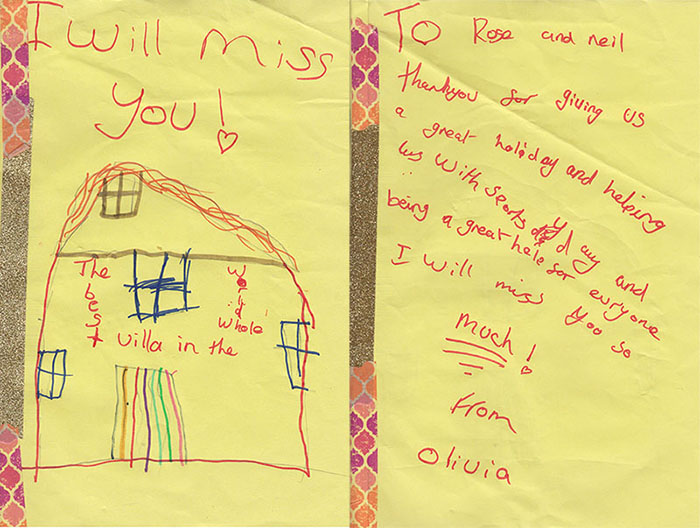 I will miss
you!
The best villa in the
whole world
To Rose and neil
thankyou for giving us
a great holiday and helping
us with sports day and
being a great hele for everyone
I will miss you so
much!
from
Olivia